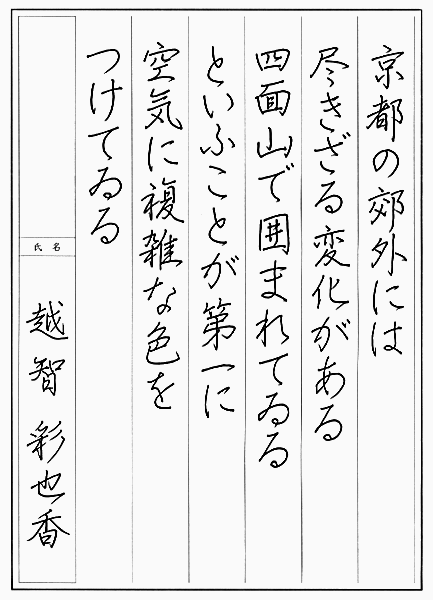 京都の郊外には
尽きざる変化がある
四面山で囲まれてゐる
といふことが第一に
空気に複雑な色を
つけてゐる
氏名
越智彩也香